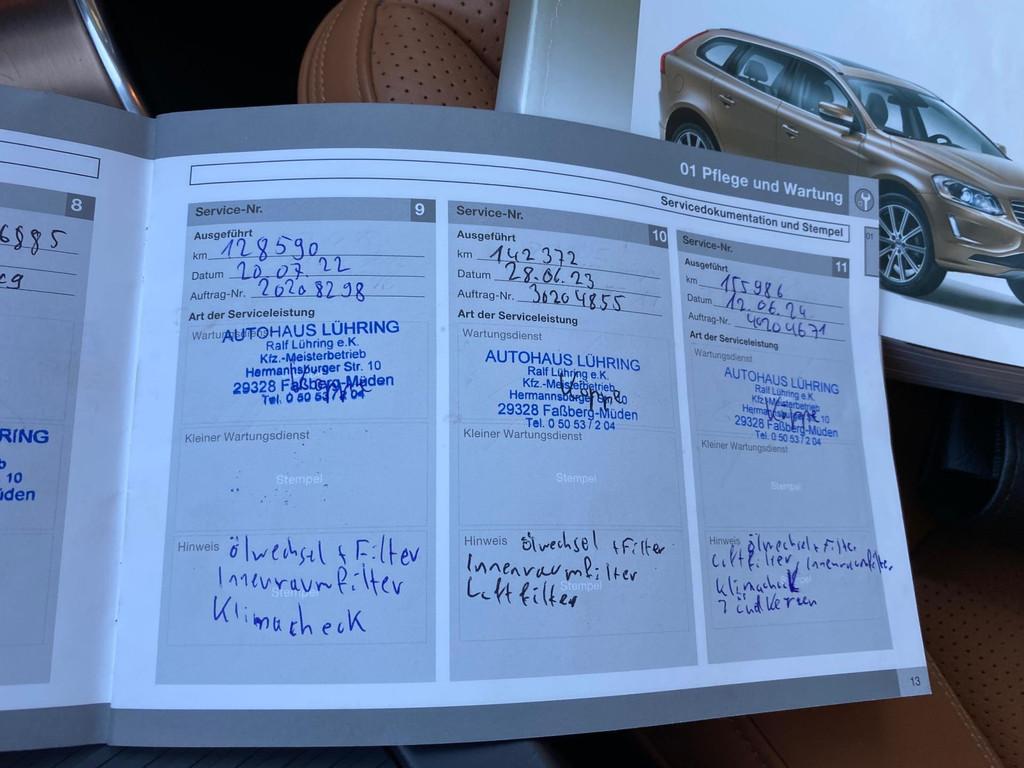 01 Pflege und Wartung
Servicedokumentation und Stempel
01
8
6885
RING
10
üden
Service-Nr. 9
Ausgeführt
km 128590
Datum 20.07.22
Auftrag-Nr. 20208298
Art der Serviceleistung
Wartungsdienst
AUTOHAUS LÜHRING
Ralf Lühring e.K.
Kfz.-Meisterbetrieb
Hermannsburger Str. 10
29328 Faßberg-Müden
Tel. 0 50 53 / 2 04
Kleiner Wartungsdienst
Stempel
Hinweis Ölwechsel + Filter
Innenraumfilter
Stempel
Klimacheck
Service-Nr. 10
Ausgeführt
km 142372
Datum 28.06.23
Auftrag-Nr. 30204855
Art der Serviceleistung
Wartungsdienst
AUTOHAUS LÜHRING
Ralf Lühring e.K.
Kfz.-Meisterbetrieb
Hermannsburger
29328 Faßberg-Müden
Tel. 0 50 53 / 2 04
Kleiner Wartungsdienst
Stempel
Hinweis Ölwechsel + Filter
Innenraumfilter
Luftfilter
Service-Nr. 11
Ausgeführt
km 155986
Datum 12.06.24
Auftrag-Nr. 40204671
Art der Serviceleistung
Wartungsdienst
AUTOHAUS LÜHRING
Ralf Lühring e.K.
Kfz.-Meisterbetrieb
Hermannsburger Str. 10
29328 Faßberg-Müden
Tel. 0 50 53 / 2 04
Kleiner Wartungsdienst
Stempel
Hinweis Ölwechsel + Filter
Luftfilter, Innenraumfilter
Klimacheck
Zündkerzen
13